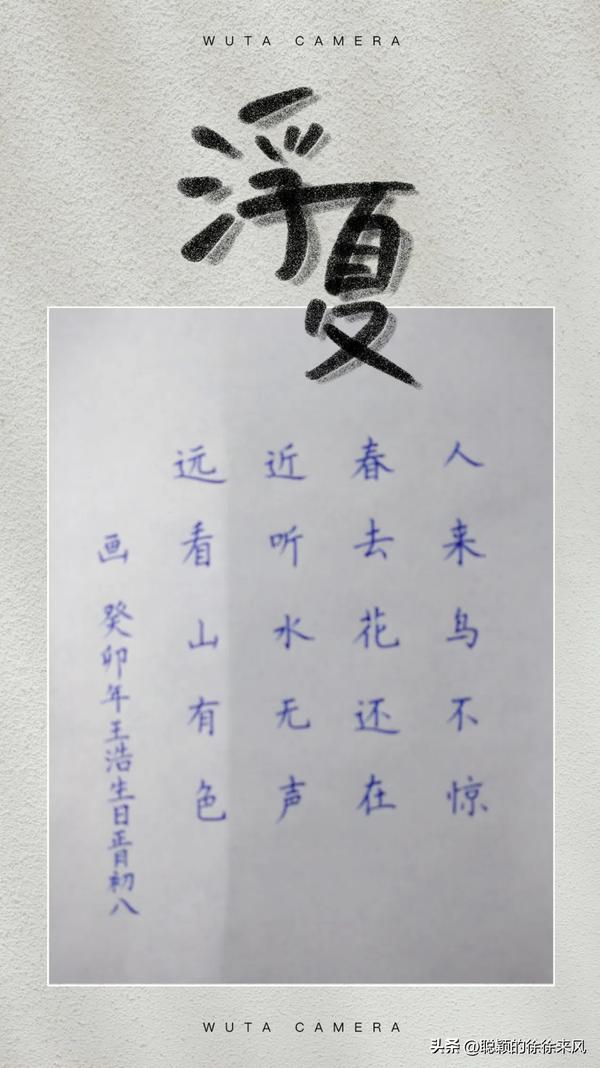 WUTA CAMERA
浮夏
画 癸卯年王浩生日正月初八
远看山有色
近听水无声
春去花还在
人来鸟不惊
WUTA CAMERA
头条 @聪颖的徐徐来风